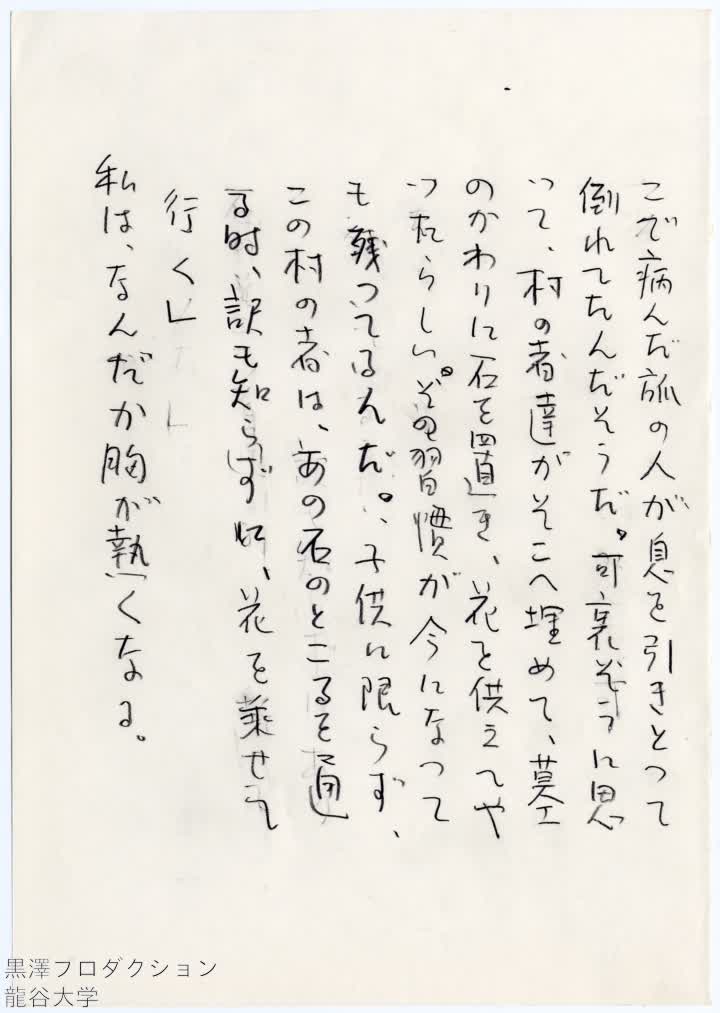 こで病んだ旅の人が息を引きとつて
倒れてたんだそうだ。可哀そうに思
つて、村の者達がそこへ埋めて、墓
のかわりに石を置き、花を供えてや
つたらしい。その習慣が今になつて
も残つてるんだ。子供に限らず、
この村の者は、あの石のところを通
る時、訳も知らずに、花を乗せて
行く」
私は、なんだか胸が熱くなる。
黒澤プロダクション
龍谷大学